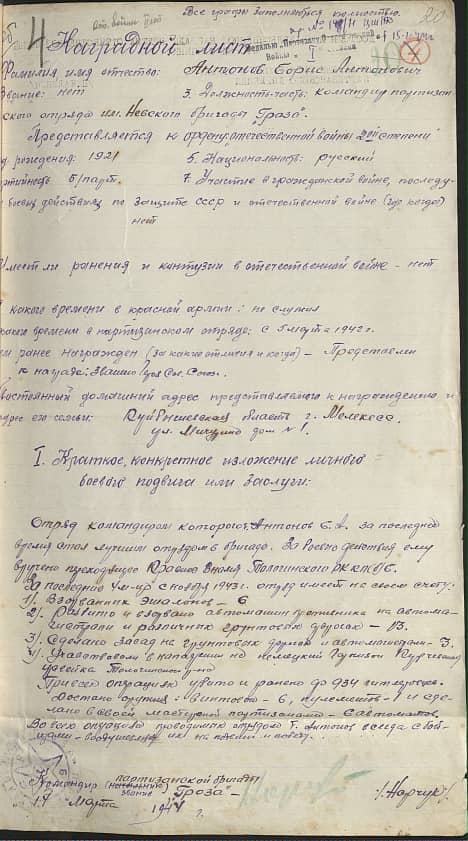 Все графы заполняются полностью.
20
4
Наградной лист
I
Фамилия имя отчество: Антонов Борис Антонович
Звание: нет 3. Должность-часть: Командир партизан-
ского отряда им. Невского бригады "Гроза".
Представляется к ордену "отечественной войны 2ой степени"
рождения: 1921 5. Национальность: русский
б/парт. 7. Участие в гражданской войне, последу-
боевых действиях по защите СССР и отечественной войне (где, когда)
нет
Имеет ли ранения и контузии в отечественной войне - нет
какого времени в красной армии: не служил
какого времени в партизанском отряде: с 5 марта 1942 г.
ранее награжден (за какие отличия и когда) - Представлен
к награде: Звание Гер Сов. Союз.
Постоянный домашний адрес представляемого к награждению и
адрес его семьи: Куйбышевская область г. Мелекесс
ул. Мичурина дом № 1.
I. Краткое, конкретное изложение личного
боевого подвига или заслуги:
Отряд командиром которого Антонов Б.А. за последнее
время стал лучшим отрядом в бригаде. За боевые действия ему
вручено переходящее Красное Знамя РК КП(б)Б.
За последние 4 м-ца с ноября 1943 г. отряд имеет на своем счету:
1/. Взорванных эшалонов - 6
2/. Разбито и взорвано автомашин противника на автома-
гистрали и различных грунтовых дорогах - 13.
3/. Сделано засад на грунтовых дорогах и автомагистрали - 3.
4/. Участвовали в нападении на немецкий гарнизон
убито и ранено до 934 гитлеровск.
Достано оружия: - винтовок - 6, пулеметов - 1 и сде-
лано в своей мастерской партизанами - 6 автоматов.
Во всех операциях проводимых отрядом т. Антонов всегда с бой-
цами - воодушевляя их на подвиги и победу.
Командир партизанской бригады
(начальник)
звание "Гроза" - /Нарчук/
17 Марта 1944 г.